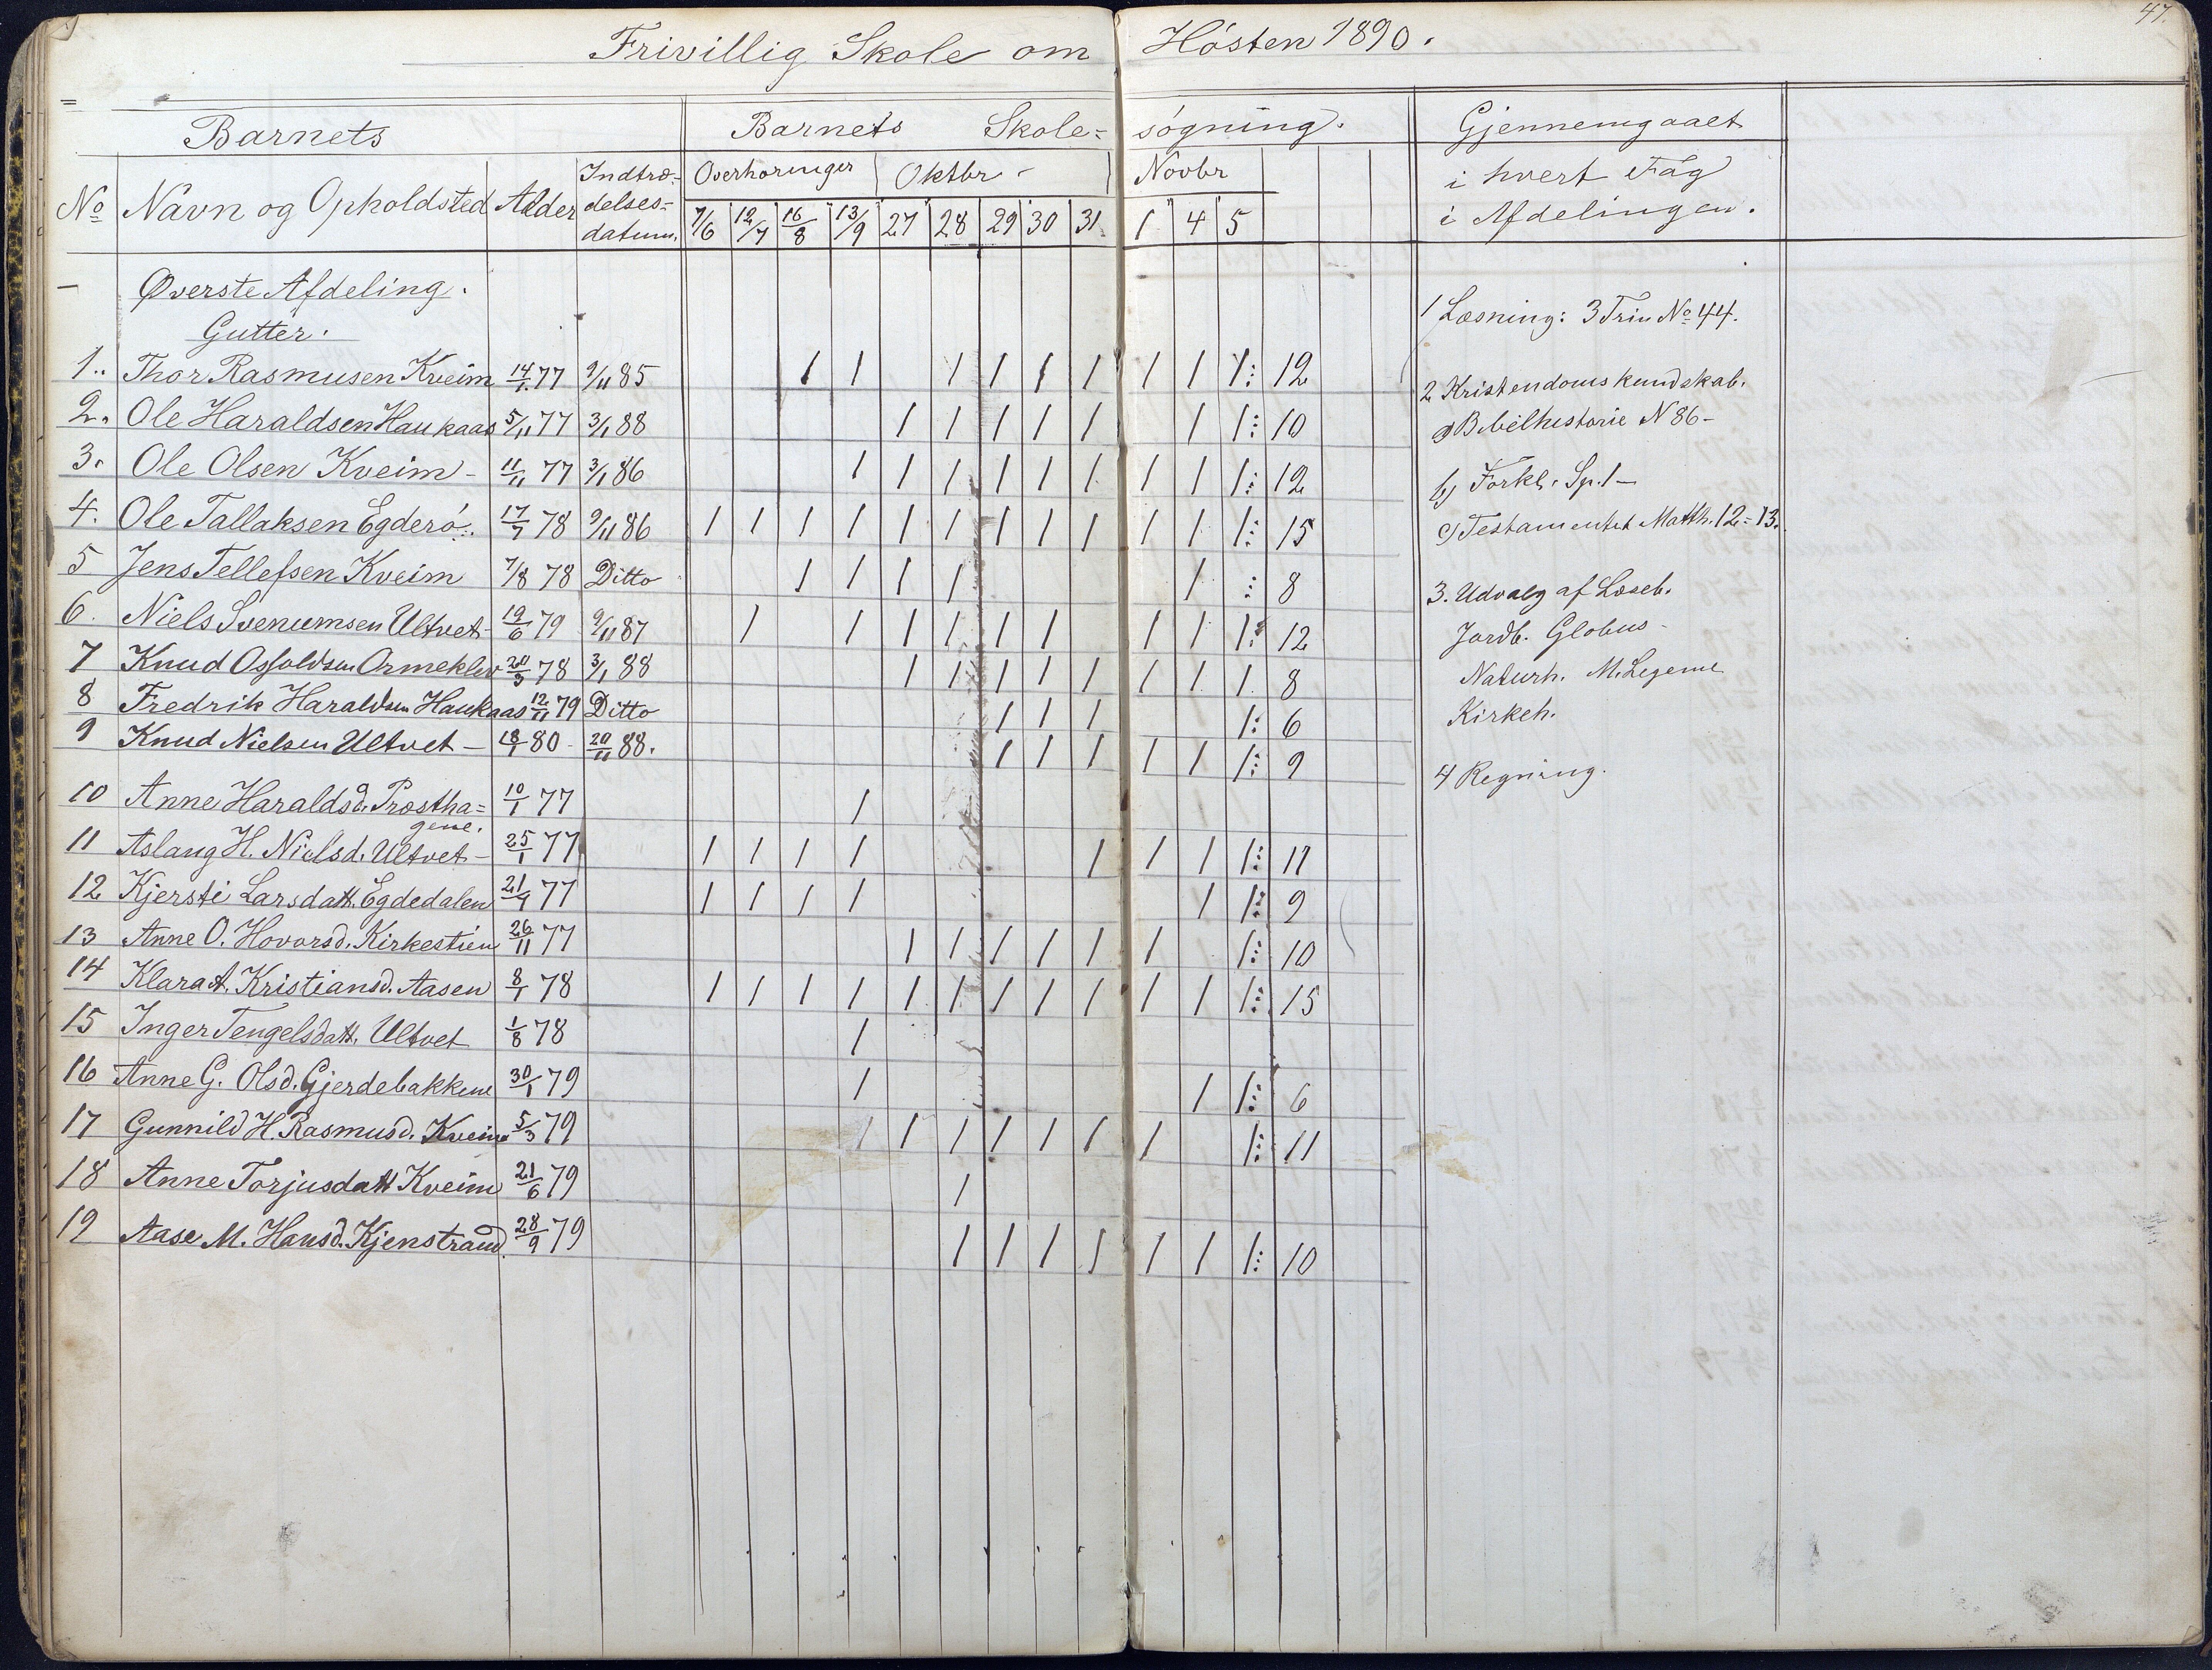 47.
Frivillig Skole om Hösten 1890.
Barnets Barnets Skole= sögning. Gjennemgaaet
No Navn og Opholdsted Alder Indtræ= delses= datum. Overhøringer Oktbr Novbr i hvert Fag
i Afdelingen.
7/6 12/7 16/8 13/9 27 28 29 30 31 1 4 5
Øverste Afdeling.
Gutter.
1. Thor Rasmusen Kveim 14/1 77 9/11 85 1 1 1 1 1 1 1 1 1: 12
2. Ole Haraldsen Haukaas 5/11 77 3/1 88 1 1 1 1 1 1 1: 10
3. Ole Olsen Kveim - 11/11 77 3/1 86 1 1 1 1 1 1 1 1 1: 12
4. Ole Tallaksen Egderö. 17/7 78 9/11 86 1 1 1 1 1 1 1 1 1 1 1 1: 15
5 Jens Tellefsen Kveim 7/8 78 Ditto 1 1 1 1 1 : 8
6. Niels Svenumsen Ultvet - 19/6 79 9/11 87 1 1 1 1 1 1 1 1 1: 12
7 Knud Osfoldsen Ormeklev 20/3 78 3/1 88 1 1 1 1 1 1 1 1 8
8 Fredrik Haraldsen Haukaas 12/11 79 Ditto 1 1 1 1: 6
9 Knud Nielsen Ultvet - 18/1 80 - 20/11 88. 1 1 1 1 1 1: 9
10 Anne Haraldsd. Prostha=
gene. 10/1 77 1
11 Aslaug H. Nielsd. Ultvet - 25/1 77 1 1 1 1 1 1 1 1: 11
12 Kjersti Larsdatt. Egdedalen 21/4 77 1 1 1 1 1 1: 9
13 Anne O. Hovorsd. Kirkestien 26/11 77 1 1 1 1 1 1 1: 10
14 Klara A. Kristiansd. Aasen 8/1 78 1 1 1 1 1 1 1 1 1 1 1 1: 15
15 Inger Tengelsdatt. Ultvet 1/8 78 1
16 Anne G. Olsd. Gjerdebakkene 30/1 79 1 1 1: 6
17 Gunnild H. Rasmusd. Kveim 5/3 79 1 1 1 1 1 1 1 1: 11
18 Anne Torjusdatt Kveim 21/6 79 1
19 Aase M. Hansd. Kjenstrand. 28/9 79 1 1 1 1 1 1 1: 10
1 Læsning: 3 Trin No 44.
2 Kristendomskundskab.
a) Bibelhistorie N 86 -
b) Forkl. Sp. 1 -
c) Testamentet Matth. 12 = 13.
3. Udvalg af Læseb.
Jordb. Globus -
Naturh. M. Legeme
Kirkeh.
4 Regning.